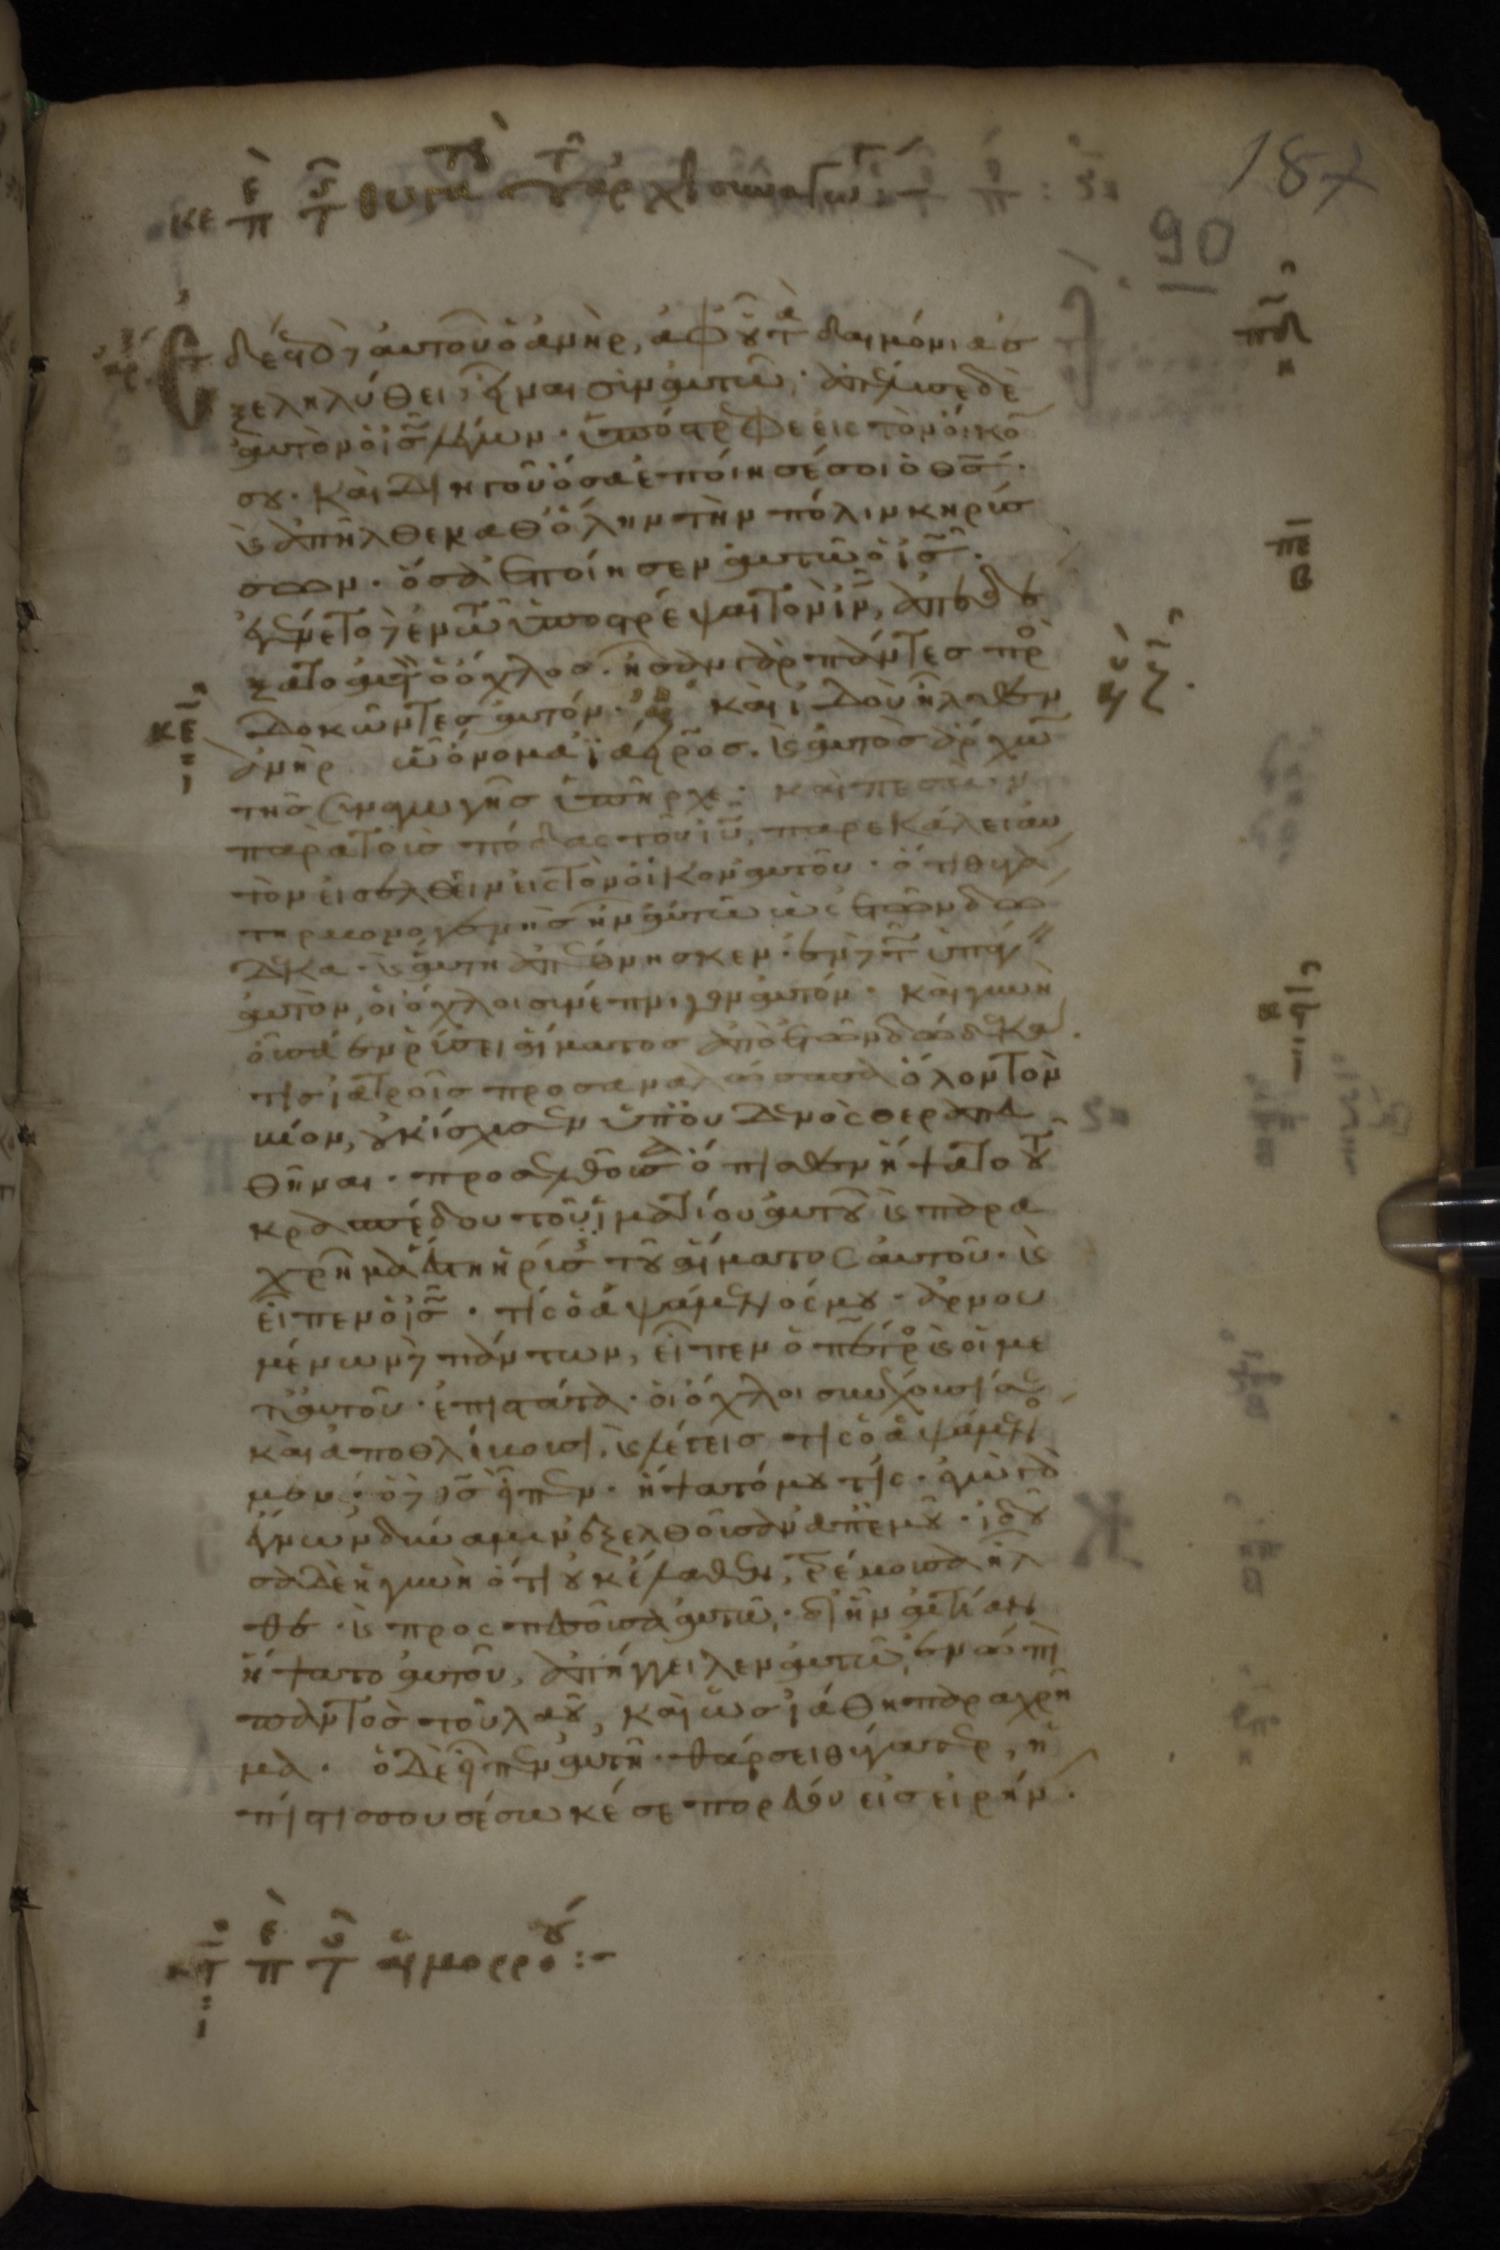 κε π τ θυγα τ αρχισυναγωγ
187
90
Εδέετο δὲ αὐτοῦ ὁ ἀνὴρ, ἀφ οὗ τ δαιμόνια ἐ
ξεληλύθει, εἶναι σὺν αὐτῶ· ἀπέλυσε δὲ
αὐτὸν ὁ ις λέγων· ὑπόστρεφε εἰς τὸν οἶκό
σου· καὶ διηγοῦ ὅσα ἐποίησέ σοι ὁ θς·
κ ἀπῆλθε καθ ὅλην τὴν πόλιν κηρύσ
σων· ὅσα ἐποίησεν αὐτῶ ὁ ις·
ἐγένετο δὲ ἐν τῶ ὑποστρέψαι τὸν ιν, ἀπεδέ
ξατο αὐτ ὁ ὄχλος· ἦσαν γὰρ πάντες προσ
δοκῶντες αὐτόν· καὶ ἰδοὺ ἦλθεν
ἀνὴρ ὧ ὄνομα ἰάειρος· κ αὐτὸς ἄρχων
τῆς συναγωγῆς ὑπῆρχε· καὶ πεσὼν
παρὰ τοὺς πόδας τοῦ ιυ, παρεκάλει αὐ
τὸν εἰσελθεῖν εἰς τὸν οἶκον αὐτοῦ· ὅτι θυγά
τηρ μονογενὴς ἦν αὐτῶ ὡς ἐτῶν δώ
δεκα· κ αὕτη ἀπέθνησκεν· ἐν δὲ τ ὑπάγ
αὐτὸν, οἱ ὄχλοι συνέπνιγον αὐτόν· καὶ γυνὴ
οὖσα ἐν ῥύσει αἵματος ἀπὸ ἐτῶν δώδεκα
τις ἰατροῖς προσαναλώσασα ὅλον τὸν
βίον, οὐκ ἴσχυσεν ὑπ οὐδενὸς θεραπευ
θῆναι· προσελθοῦσα ὄπισθεν ἥψατο τοῦ
κρασπέδου τοῦ ἱματίου αὐτοῦ κ παρα
χρῆμα ἔστη ἡ ῥύσις τοῦ αἵματος αὐτοῦ· κ
εἶπεν ὁ ις· τίς ὁ ἁψάμενός μου· ἀρνου
μένων δὲ πάντων, εἶπεν ὁ πέτρος κ οἱ με
τ αὐτοῦ· ἐπιστάτα· οἱ ὄχλοι συνέχουσί σε
καὶ ἀποθλίβουσι, κ λέγεις τίς ὁ ἁψάμενός
μου· ὁ δὲ ις εἶπεν· ἥψατό μου τίς· ἐγὼ γὰρ
ἔγνων δύναμιν ἐξελθοῦσαν ἀπ ἐμοῦ· ἰδοῦ
σα δὲ ἡ γυνὴ ὅτι οὐκ ἔλαθεν, τρέμουσα ἦλ
θε· κ προσπεσοῦσα αὐτῶ· δι ἣν αἰτίαν
ἥψατο αὐτοῦ, ἀπήγγειλεν αὐτῶ ἐνώπι
παντὸς τοῦ λαοῦ, καὶ ὡς ἰάθη παραχρῆ
μα· ὁ δὲ εἶπεν αὐτῆ· θάρσει θύγατερ, ἡ
πίστις σου σέσωκέ σε πορεύου εἰς εἰρήν·
π τ αἱμορροού:-